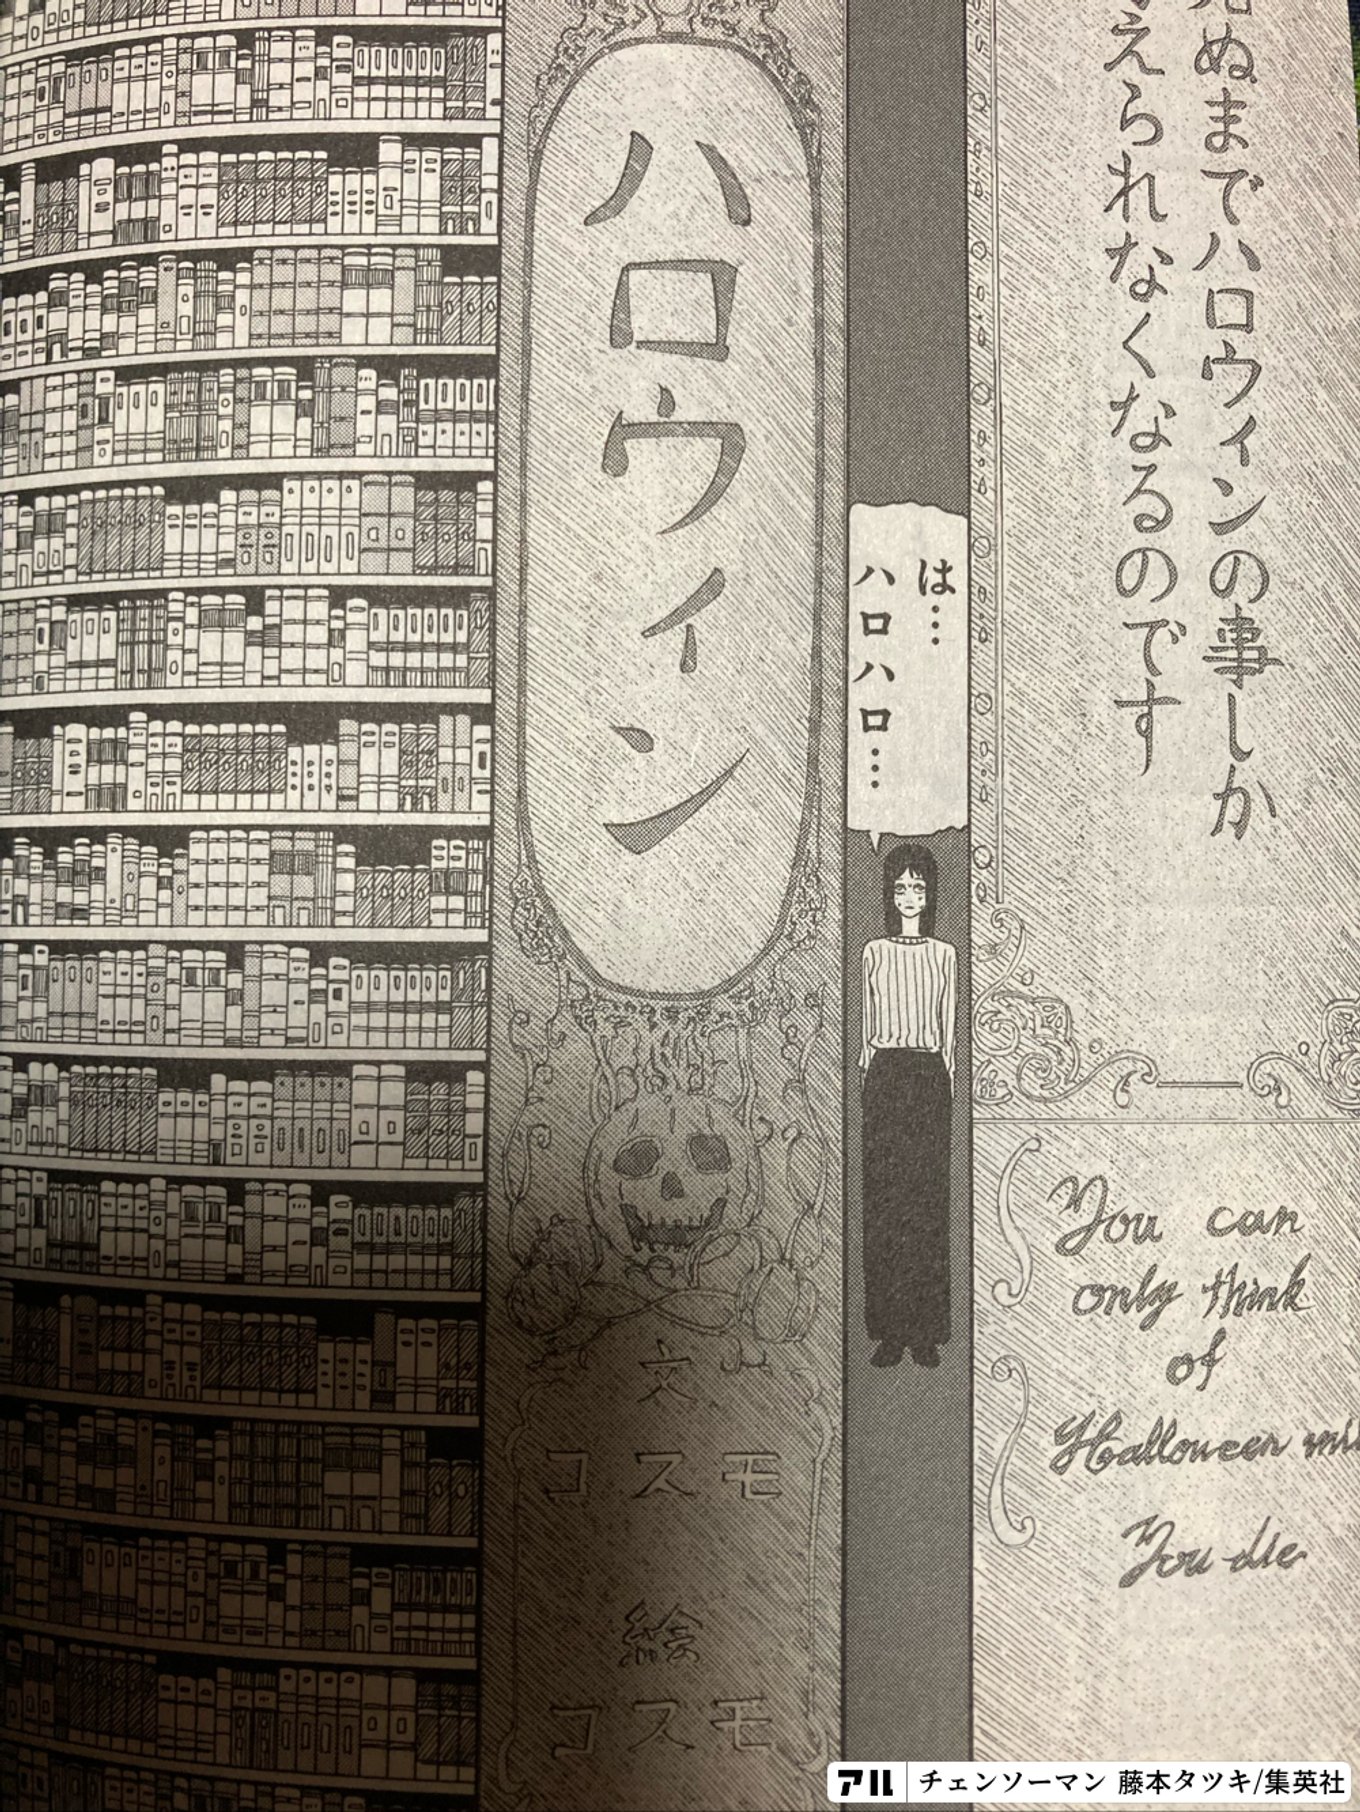 ぬまでハロウィンの事しか
えられなくなるのです
You can
only think
of
Halloween
You die
は…
ハロハロ…
ハロウィン
文
コスモ
絵
コスモ
アル チェンソーマン 藤本タツキ/集英社